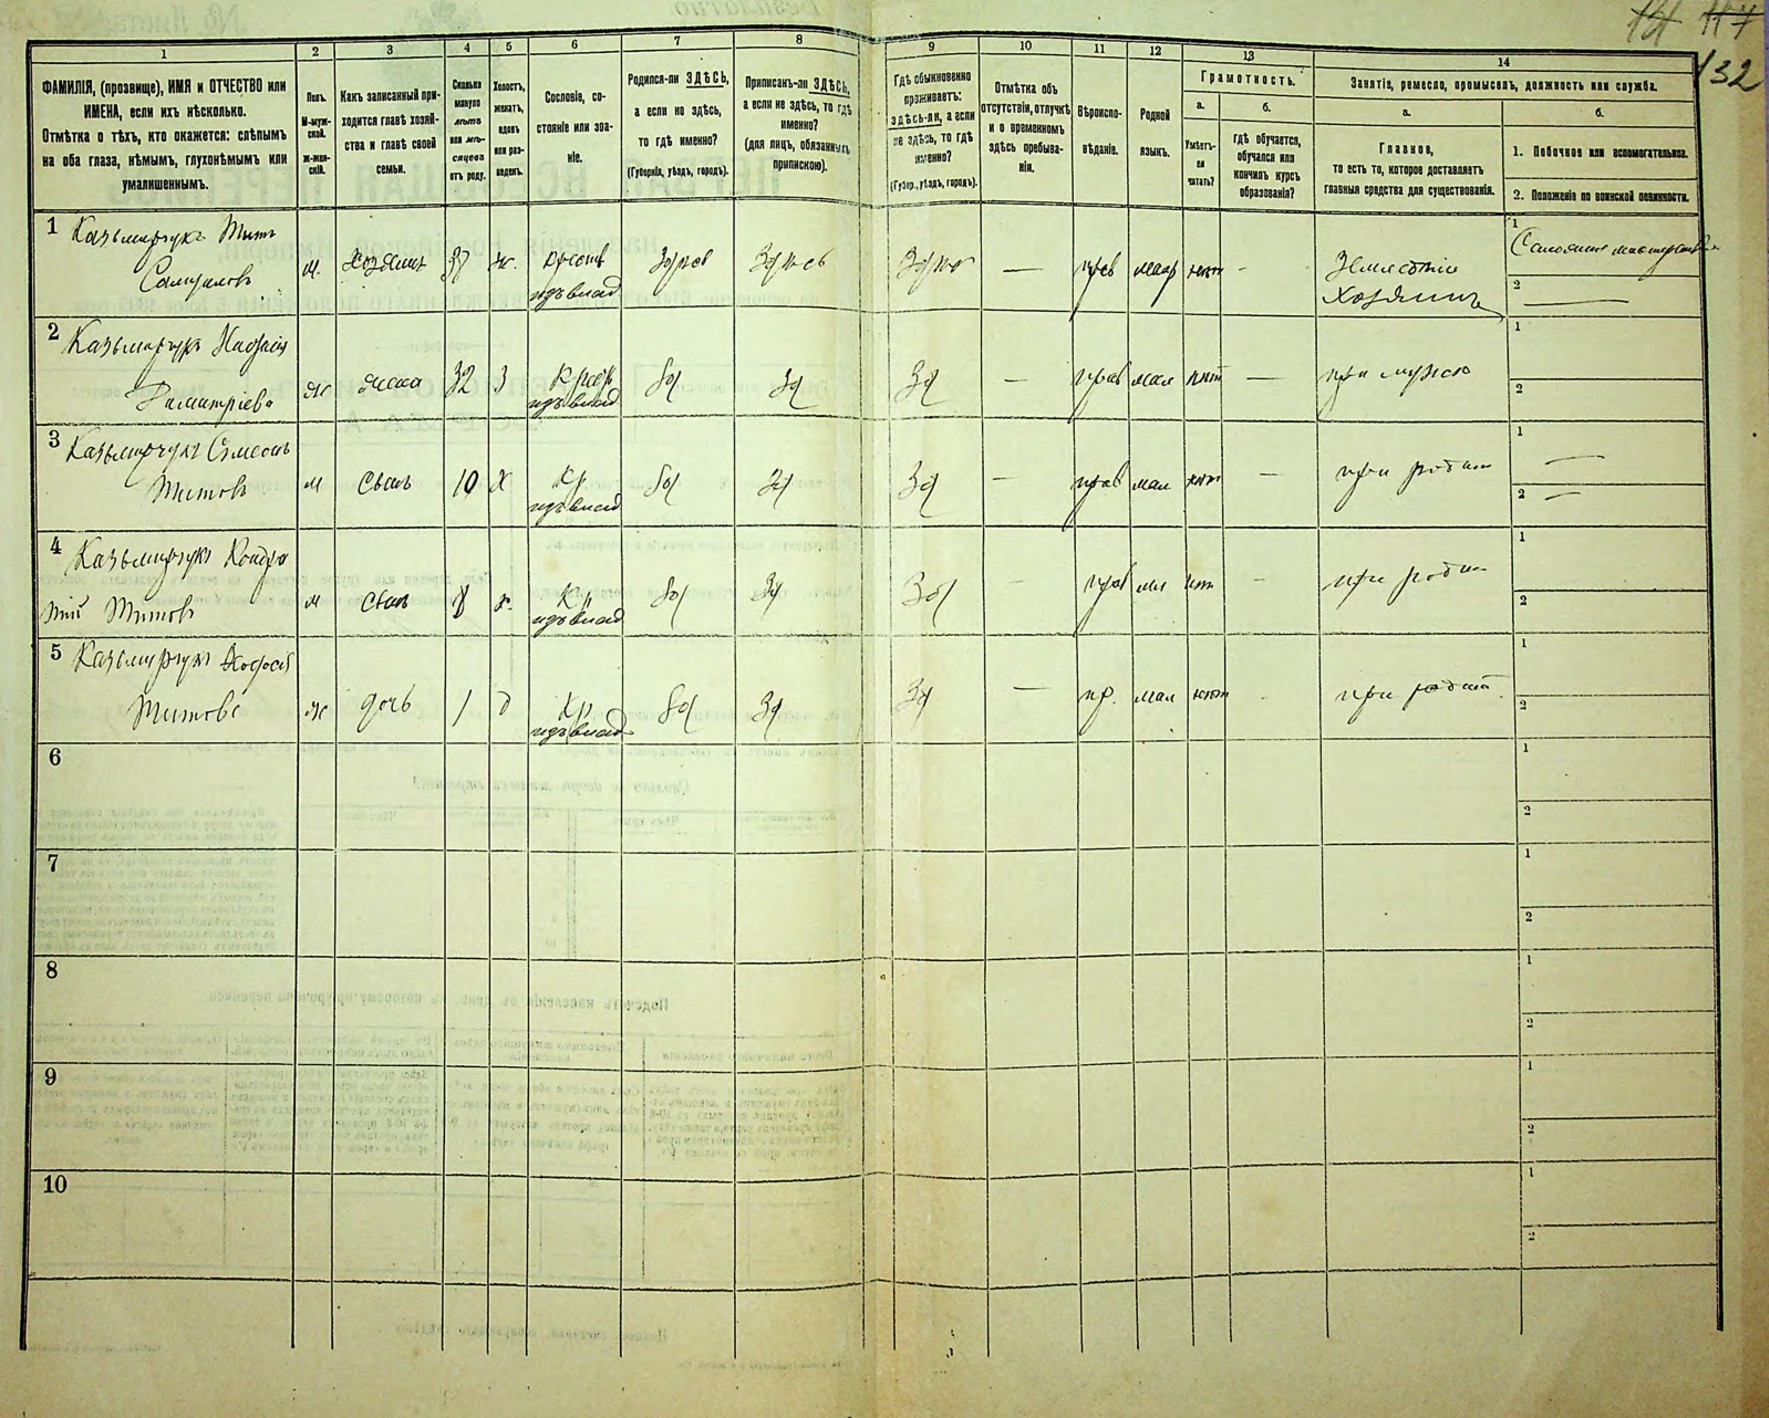 132
1 2 3 4 5 6 7 8 9 10 11 12 13 14
ФАМИЛІЯ, (прозвище), ИМЯ и ОТЧЕСТВО или
ИМЕНА, если ихъ нѣсколько.
Отмѣтка о тѣхъ, кто окажется: слѣпымъ
на оба глаза, нѣмымъ, глухонѣмымъ или
умалишеннымъ.
Полъ.
М-муж-
ской.
Ж-жен-
скій.
Какъ записанный при-
ходится главѣ хозяй-
ства и главѣ своей
семьи.
Сколько
минуло
лѣтъ
или мѣ-
сяцевъ
отъ роду.
Холостъ,
женатъ,
вдовъ
или раз-
веденъ.
Сословіе, со-
стояніе или зва-
ніе.
Родился-ли ЗДѢСЬ,
а если не здѣсь,
то гдѣ именно?
(Губернія, уѣздъ, городъ).
Приписанъ-ли ЗДѢСЬ,
а если не здѣсь, то гдѣ
именно?
(для лицъ, обязанныхъ
припискою).
Гдѣ обыкновенно
проживаетъ:
здѣсь-ли, а если
не здѣсь, то гдѣ
именно?
(Губер., уѣздъ, городъ).
Отмѣтка объ
отсутствіи, отлучкѣ
и о временномъ
здѣсь пребыва-
ніи.
Вѣроиспо-
вѣданіе.
Родной
языкъ.
Грамотность.
а.
Умѣетъ-
ли
читать?
б.
гдѣ обучается,
обучался или
кончилъ курсъ
образованія?
Занятіе, ремесло, промыселъ, должность или служба.
а.
Главное,
то есть то, которое доставляетъ
главныя средства для существованія.
б.
1. Побочное или вспомогательное.
2. Положеніе по воинской повинности.
1 Казьмирчукъ Титъ
м. хозяинъ 37 ж. крест Здѣсь Здѣсь Здѣсь — прав мало нѣт - Земледѣлие
из влад Хозяинъ
1
2 —
2 Казьмирчукъ
Димитріева
ж жена 32 З Крест Зд Зд Зд — прав мал нѣт — при мужѣ
из влад
1
2
3 Казьмирчукъ Симеонъ
Титовъ
м сынъ 10 х Кр Зд Зд Зд — прав мал нѣт — при родит
из влад
1 —
2 —
4 Казьмирчукъ Кондра
тій Титовъ
м сынъ 8 х. Кр Зд Зд Зд — прав мал нѣт - при родит
из влад
1
2
5 Казьмирчукъ
Титова
ж дочь 1 д Кр Зд Зд Зд — пр. мал нѣт при родит.
из влад
1
2
6
1
2
7
1
2
8
1
2
9
1
2
10
1
2